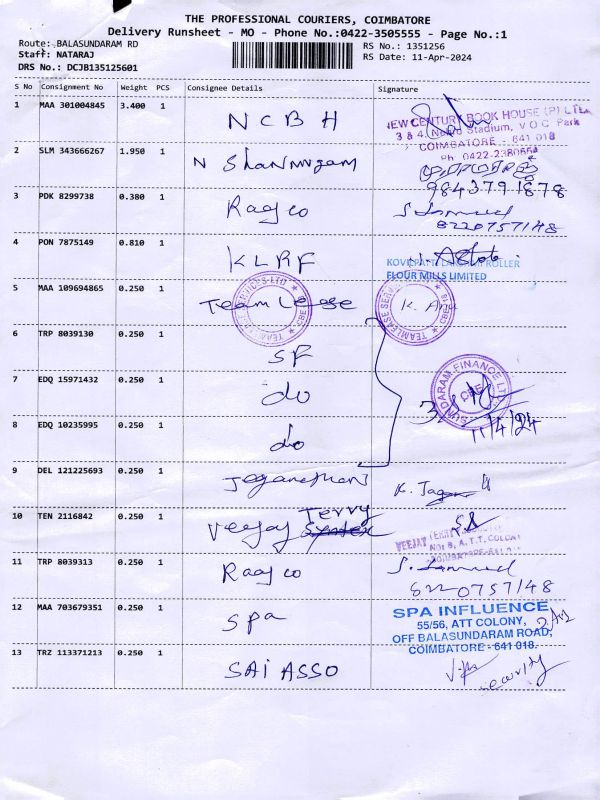 THE PROFESSIONAL COURIERS, COIMBATORE
Delivery Runsheet - MO - Phone No.:0422-3505555 - Page No.:1
Route: BALASUNDARAM RD
Staff: NATARAJ
DRS No.: DCJB135125601
RS No.: 1351256
RS Date: 11-Apr-2024
S No Consignment No Weight PCS Consignee Details Signature
1 MAA 301004845 3.400 1 NCBH
NEW CENTURY BOOK HOUSE (P) LTD.
3 & 4, Nehru Stadium, V O C Park
COIMBATORE - 641 018
Ph 0422-2380554
2 SLM 343666267 1.950 1 N Shanmugam
9843791878
3 PDK 8299738 0.380 1 Raagco
8220757148
4 PON 7875149 0.810 1 KLRF
ROLLER
FLOUR MILLS LIMITED
5 MAA 109694865 0.250 1 Team Lease
TEAMLEASE SERVICES LTD CBE
K. Anu
6 TRP 8039130 0.250 1 SF
7 EDQ 15971432 0.250 1 do
SUNDARAM FINANCE LTD CBE
3
11/4/24
8 EDQ 10235995 0.250 1 do
9 DEL 121225693 0.250 1 Jeganathan
10 TEN 2116842 0.250 1 Veejay Syntex Terry
VEEJAY TERRY
No: 8, A.T.T. COLONY
COIMBATORE-641
11 TRP 8039313 0.250 1 Raagco
8220757148
12 MAA 703679351 0.250 1 Spa
SPA INFLUENCE
55/56, ATT COLONY,
OFF BALASUNDARAM ROAD,
COIMBATORE - 641 018.
13 TRZ 113371213 0.250 1 SAI ASSO
security